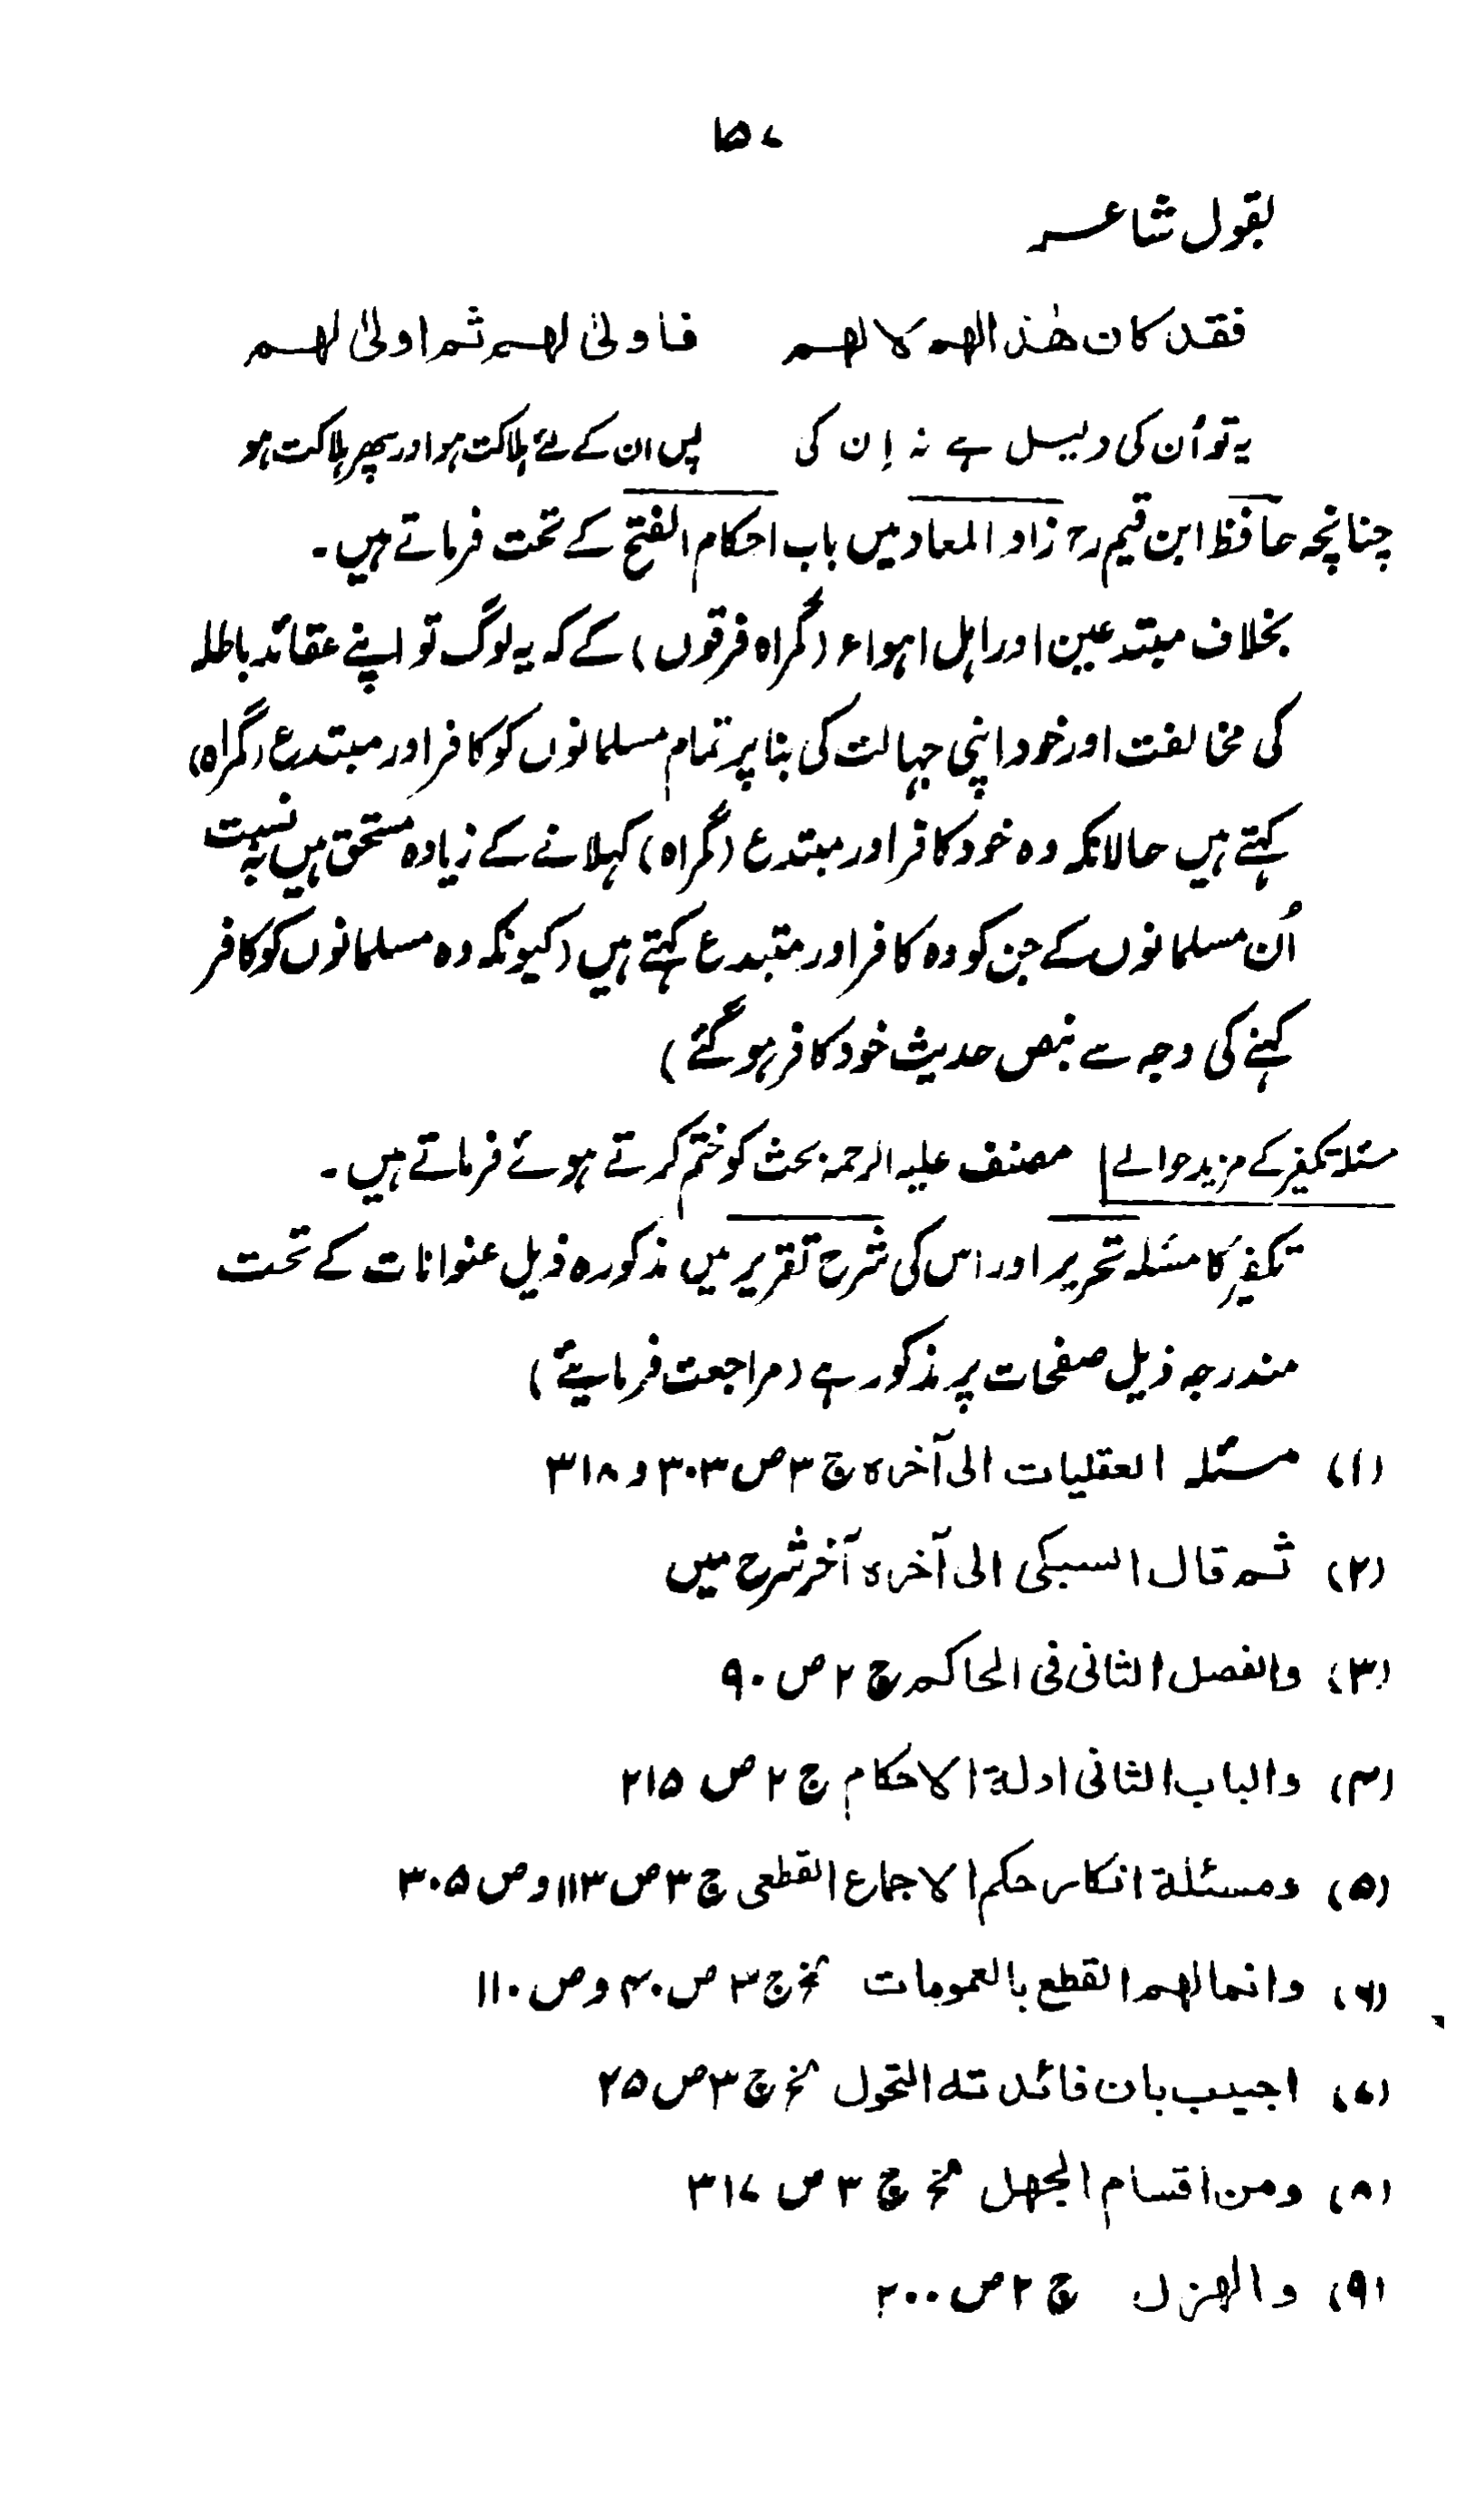 ۱۵۷
بقول شاعر
فقد کان ھذا لھم لا لھم فاولیٰ لھم ثم اولیٰ لھم
یہ تو اُن کی دلیل ہے نہ اِن کی پس ان کے لئے ہلاکت ہو اور پھر ہلاکت ہو
چنانچہ حافظ ابن قیم رح زاد المعاد میں باب احکام الفتح کے تحت فرماتے ہیں۔
بخلاف مبتدعین اور اہل اہواء (گمراہ فرقوں) کے کہ یہ لوگ تو اپنے عقائد باطلہ
کی مخالفت اور خود اپنی جہالت کی بنا پر تمام مسلمانوں کو کافر اور مبتدع (گمراہ)
کہتے ہیں حالانکہ وہ خود کافر اور مبتدع (گمراہ) کہلانے کے زیادہ مستحق ہیں بہ نسبت
اُن مسلمانوں کے جن کو وہ کافر اور مبتدع کہتے ہیں (کیونکہ وہ مسلمانوں کو کافر
کہنے کی وجہ سے بنص حدیث خود کافر ہو گئے)
مسئلہ تکفیر کے مزید حوالے مصنف علیہ الرحمہ بحث کو ختم کرتے ہوئے فرماتے ہیں۔
تکفیر کا مسئلہ تحریر اور اس کی شرح تقریر میں مذکورہ ذیل عنوانات کے تحت
مندرجہ ذیل صفحات پر مذکور ہے (مراجعت فرمایئے)
(۱) مسئلہ العقلیات الی آخرہ ج ۳ ص ۳۰۳ و ۳۱۸
(۲) ثم قال السبکی الی آخرہ آخر شرح میں
(۳) والفصل الثانی فی الحاکم ج ۲ ص ۹۰
(۴) والباب الثانی ادلة الاحکام ج ۲ ص ۲۱۵
(۵) ومسئلة انکار حکم الاجماع القطعی ج ۳ ص ۱۱۳ و ص ۳۰۵
(۶) وانما لھم القطع بالعمومات الخ ج ۳ ص ۴۰ و ص ۱۱۰
(۷) اجیب بان فائدتہ التحول الخ ج ۳ ص ۲۵
(۸) ومن اقسام الجھل الخ ج ۳ ص ۳۱۷
(۹) والھزل ج ۲ ص ۲۰۰